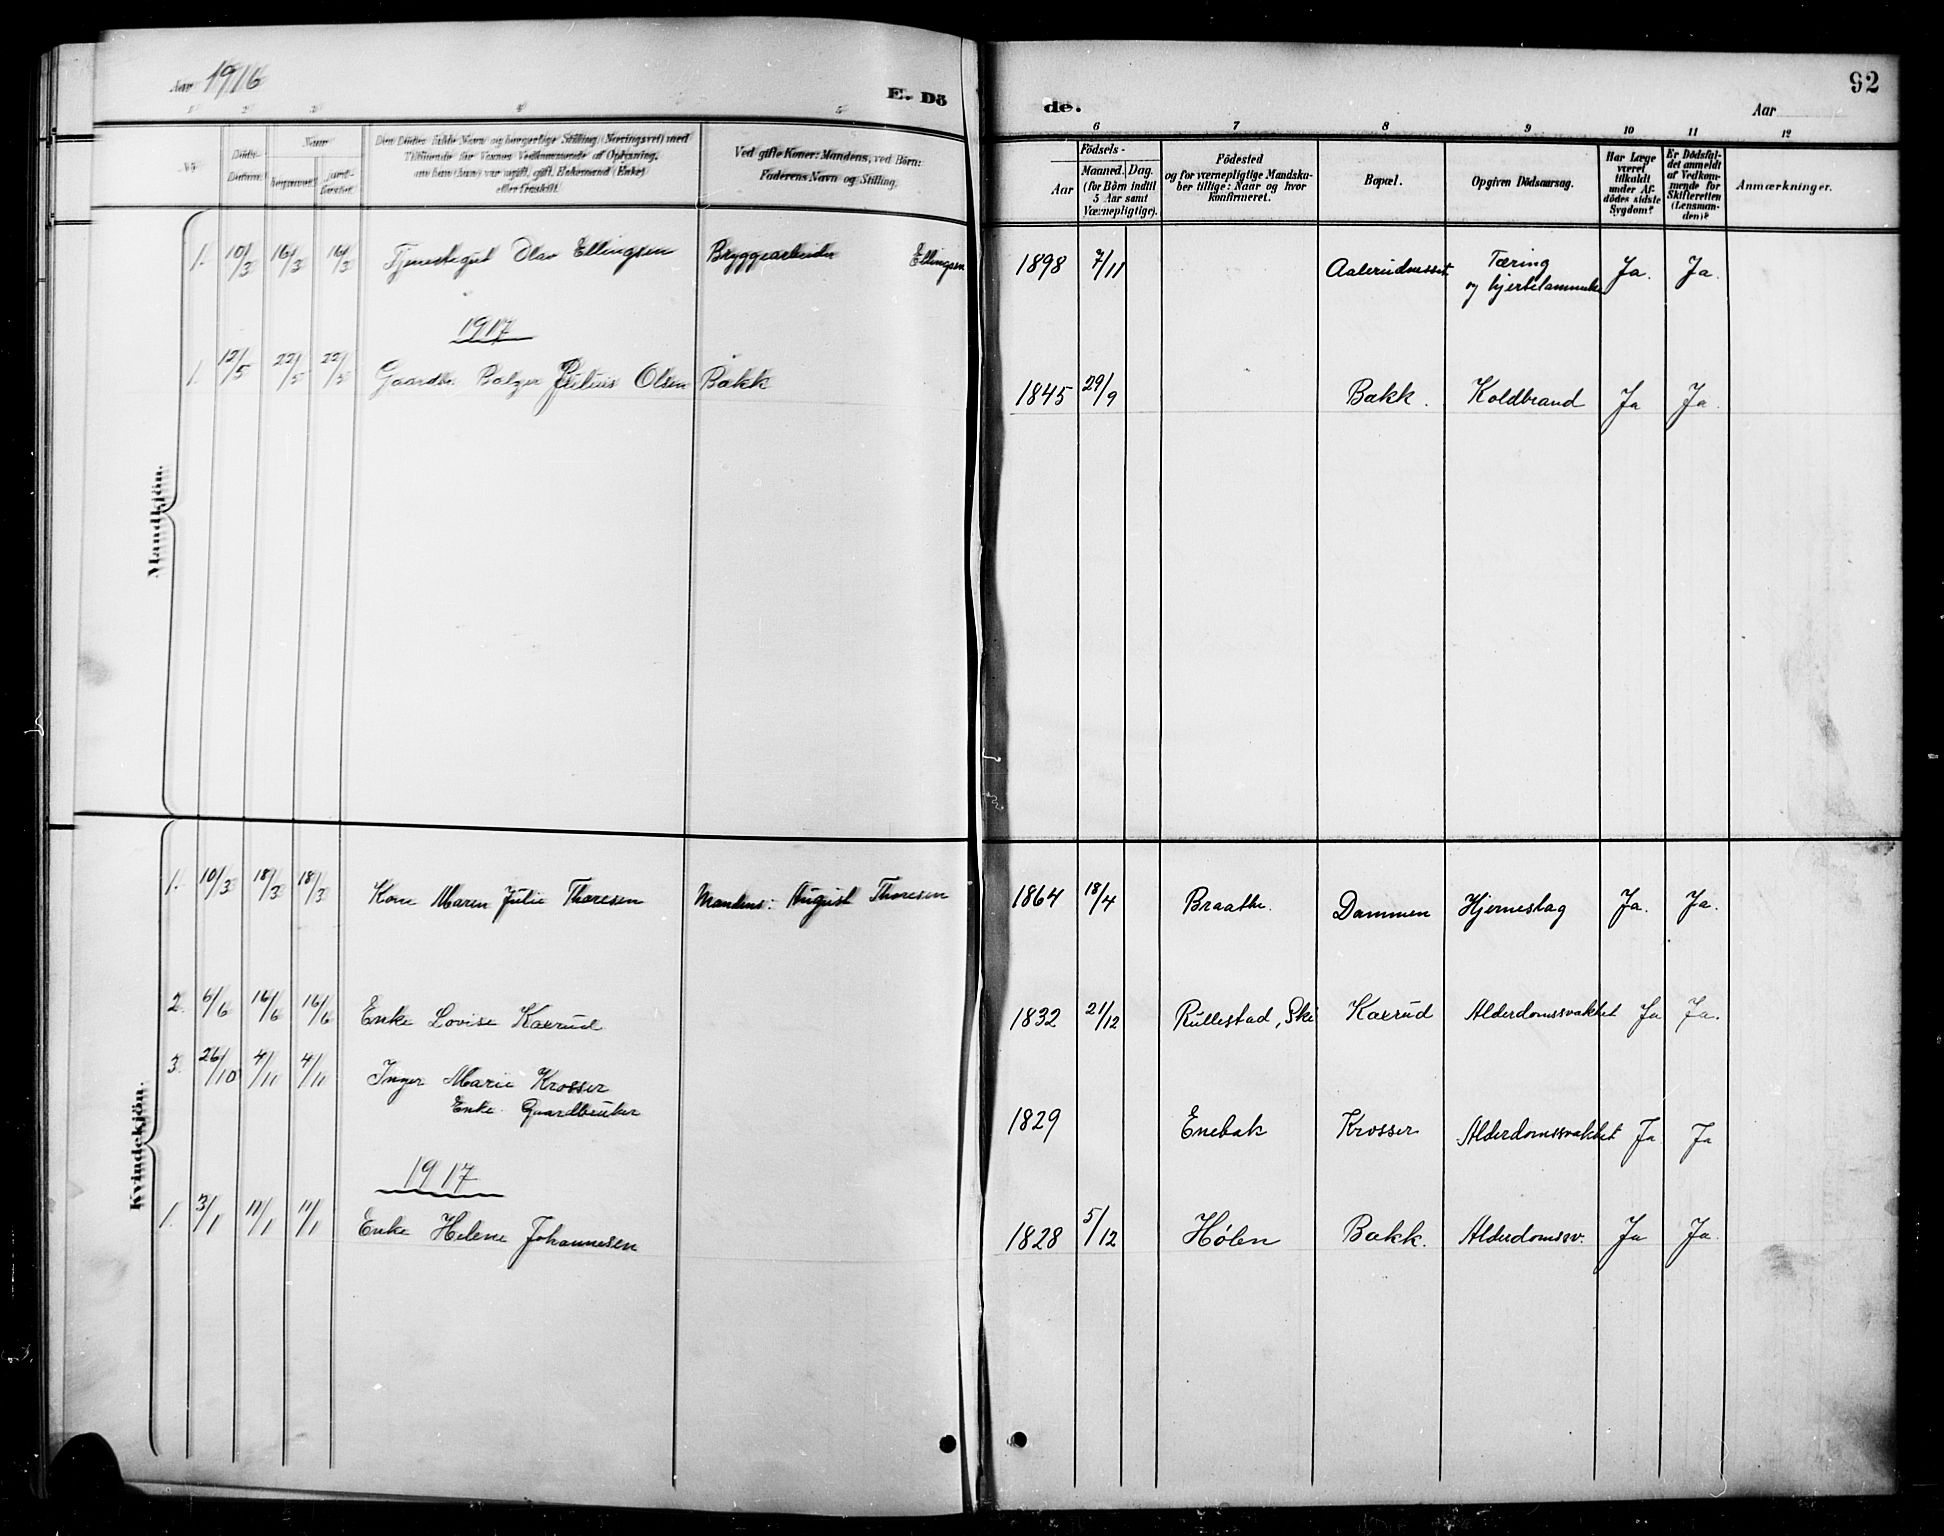 Aar 1916
E. Dö
de.
92
Aar
1 2 3 4 5
6 7 8 9 10 11 12
No.
Döds-
Datum.
Naar
begravet.
jord-
fæstet.
Den Dödes fulde Navn og borgerlige Stilling (Næringsvei) med
Tilföiende for Voxnes Vedkommende af Oplysning,
om han (hun) var ugift, gift, Enkemand (Enke)
eller fraskilt.
Ved gifte Koner: Mandens, ved Börn:
Faderens Navn og Stilling.
Födsels-
Aar
Maaned. Dag.
(for Börn indtil
5 Aar samt
Værnepligtige).
Födested
og for værnepligtige Mandska-
ber tillige: Naar og hvor
konfirmeret.
Bopæl.
Opgiven Dödsaarsag.
Har Læge
været
tilkaldt
under Af-
dödes sidste
Sygdom?
Er Dödsfal-
det anmeldt
af Vedkom-
mende for
Skifteretten
(Lensman-
den)?
Anmærkninger.
Mandkjön.
1. 10/3 16/3 16/3 Tjenestegut Olav Ellingsen Bryggearbeider Ellingsen 1898 7/11 Aalerudnesset Tæring Ja. Ja.
og hjertelammelse
1917
1. 12/5 22/5 22/5 Gaardbr. Balzer Julius Olsen Bakk 1845 29/9 Bakk. Koldbrand Ja Ja.
Kvindekjön.
1. 10/3 18/3 18/3 Kone Maren Julie Thoresen Mandens: August Thoresen 1864 18/4 Braathe. Dammen Hjerneslag Ja. Ja.
2. 6/6 16/6 16/6 Enke Lovise Kaxrud 1832 21/12 Rullestad, Ski Kaxrud Alderdomssvakhet Ja Ja.
3. 26/10 4/11 4/11 Inger Marie Krosser
Enke Gaardbruker 1829 Enebak Krosser Alderdomssvakhet Ja Ja
1917
1. 3/1 11/1 11/1 Enke Helene Johannesen 1828 5/12 Hølen Bakk. Alderdomssv. Ja Ja.